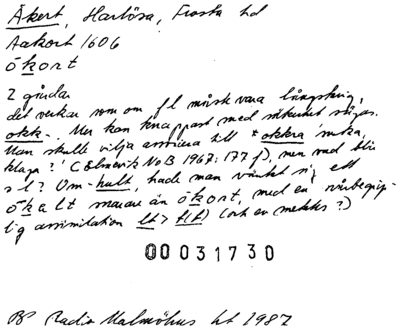 Åkert, Harlösa, Frosta hd
Aakort 1606
ökort
2 gårdar
det verkar som om fl måste vara långstavig,
okk-. Mer kan knappast med säkerhet sägas.
Man skulle vilja anknyta till *okkra
klaga?' (Elmevik NoB 1967: 177 f), men vad blir
sl? Om -hult, hade man väntat sig ett
ökalt snarare än ökort, med en
lig assimilation lt > t(t) (och en metates?)
00031730
BP Radio Malmöhus ht 1987